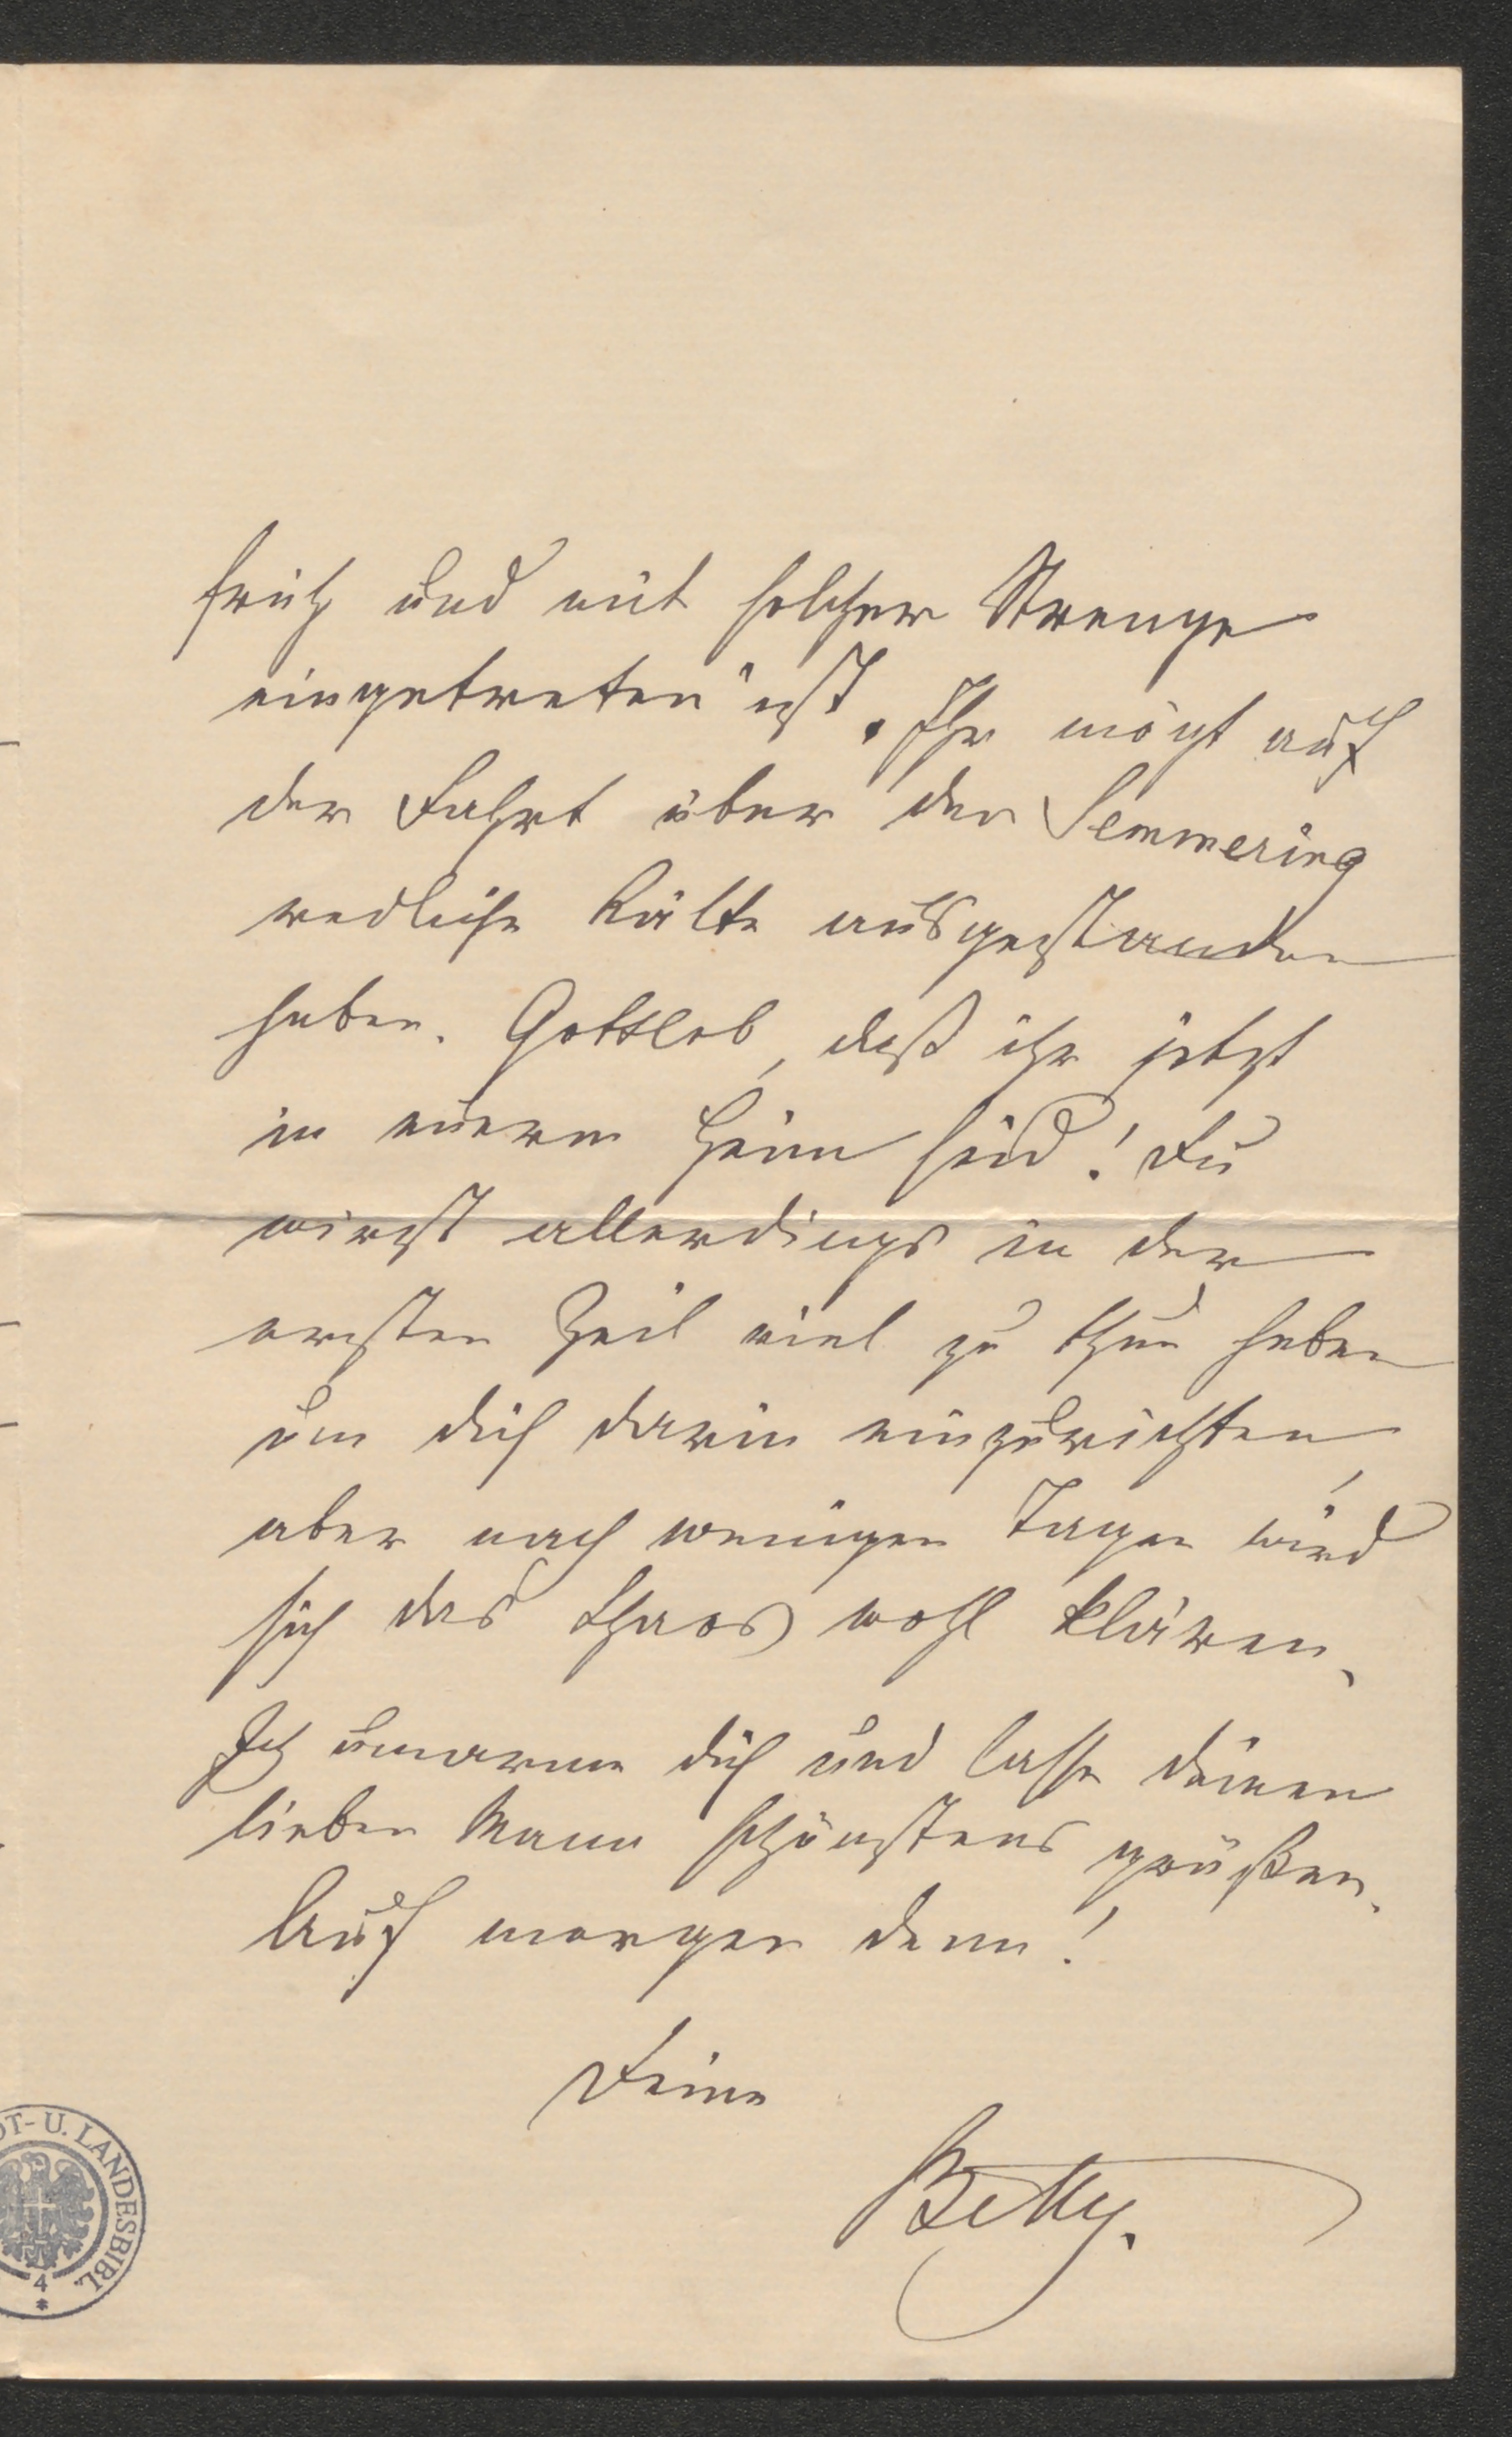 früh und mit solcher Strenge
eingetreten ist. Ihr mögt auf
der Fahrt über den Semmering
redliche Kälte ausgestanden
haben. Gottlob, daß ihr jetzt
in euerm Heim seid! Du
wirst allerdings in der
ersten Zeit viel zu thun haben
um dich darin einzurichten,
aber nach wenigen Tagen wird
sich das Chaos wohl klären.
Ich umarme dich und lasse deinen
lieben Mann schönstens grüßen.
Auf morgen denn!
Deine
Betty.
DT- U. LANDESBIBL.
4